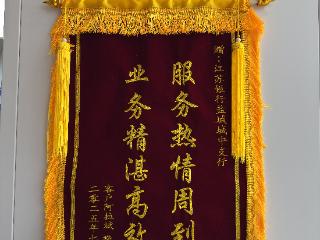 赠：江苏银行盐城城中支行
服务热情周到
业务精湛高效
客户阿拉斌
二零二五年七